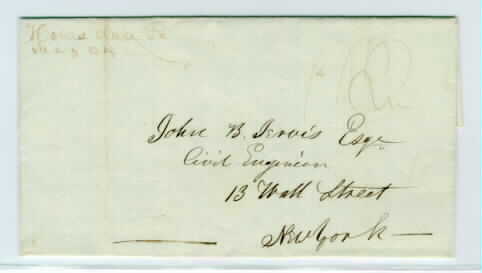 Honesdale Pa
John B. Jervis Esqr
Civil Engineer
13 Wall Street
New York